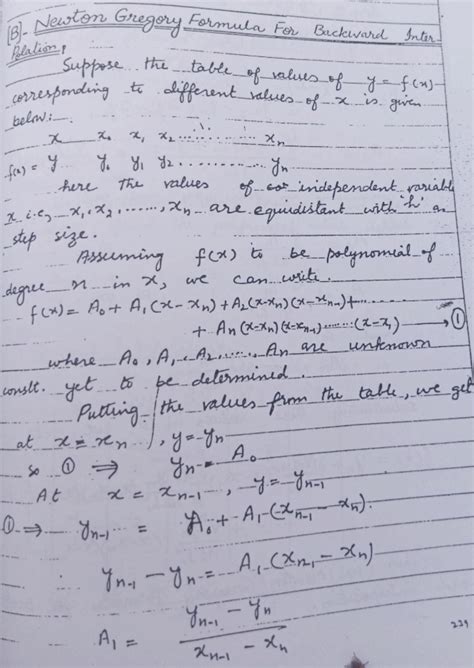 [B]- Newton Gregory Formula For Backward Inter
Polation,
Suppose the table of values of y = f(x)
corresponding to different values of x is given
below:-
x x₀ x₁ x₂ ............ xₙ
f(x) = y y₀ y₁ y₂ ............ yₙ
here the values of independent variable
x i.e, x₁, x₂, ......, xₙ are equidistant with 'h' as
step size.
Assuming f(x) to be polynomial of
degree n in x, we can write.
f(x) = A₀ + A₁(x-xₙ) + A₂(x-xₙ)(x-xₙ₋₁) + ......
+ Aₙ(x-xₙ)(x-xₙ₋₁)......(x-x₁) → ①
where A₀, A₁, A₂, ...., Aₙ are unknown
constt. yet to be determined.
Putting the values from the table, we get
at x = xₙ, y = yₙ
so ① ⇒ yₙ = A₀
At x = xₙ₋₁, y = yₙ₋₁
① ⇒ yₙ₋₁ = A₀ + A₁(xₙ₋₁ - xₙ).
yₙ₋₁ - yₙ = A₁(xₙ₋₁ - xₙ)
A₁ = (yₙ₋₁ - yₙ) / (xₙ₋₁ - xₙ)